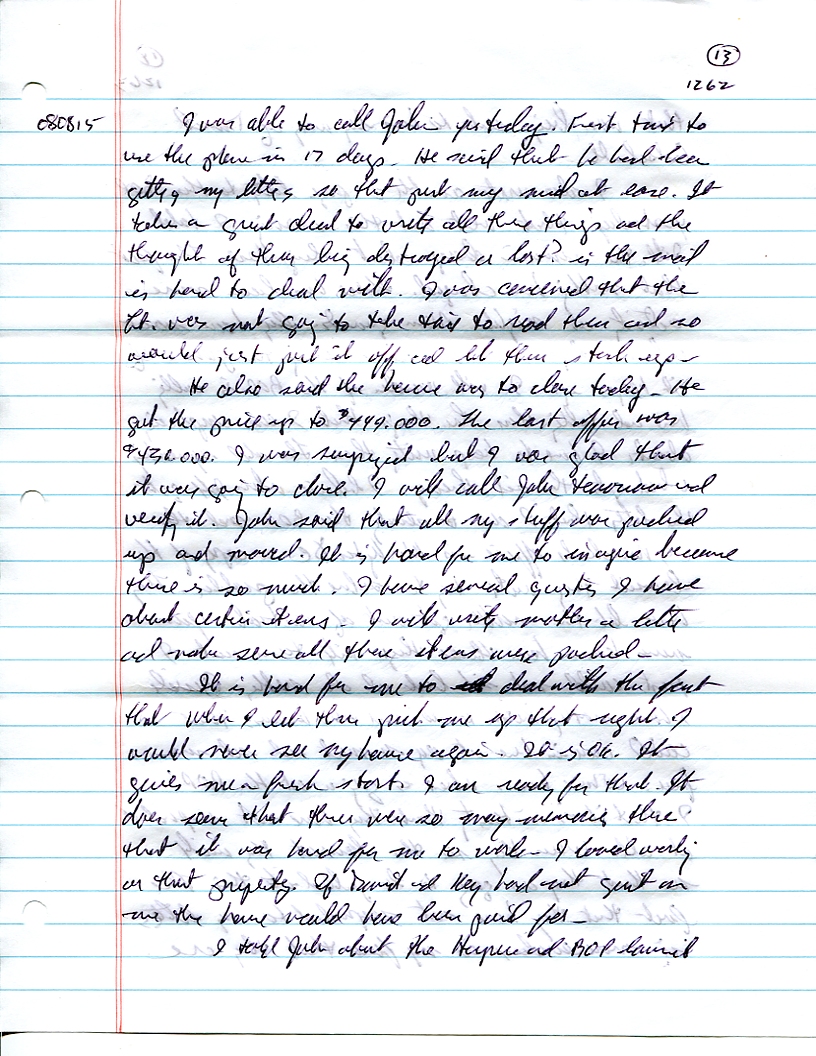 13
1262
080815 I was able to call John yesterday. First time to
use the phone in 17 days. He said that he had been
getting my letters so that put my mind at ease. It
takes a great deal to write all these things and the
thought of them being destroyed or lost? in the mail
is hard to deal with. I was concerned that the
Lt. was not going to take time to read them and so
would just put it off and let them stack up -
He also said the house was to close today - He
got the price up to $449.000. The last offer was
I was surprized but I was glad that
it was going to close. I will call John tomorrow and
verify it. John said that all my stuff was packed
up and moved. It is hard for me to imagine because
there is so much. I have several I have
about certain items. I will write mother a letter
and make sure all these items were packed -
It is hard for me to deal with the fact
that when I let them pick me up that night I
would never see my house again. It is OK. It
gives me a fresh start. I am ready for that. It
does seem that there were so many memories there
that it was hard for me to work - I loved working
on that property. If David and Kay had not quit on
me the house would have been paid for -
I told John about the and BOP lawsuit